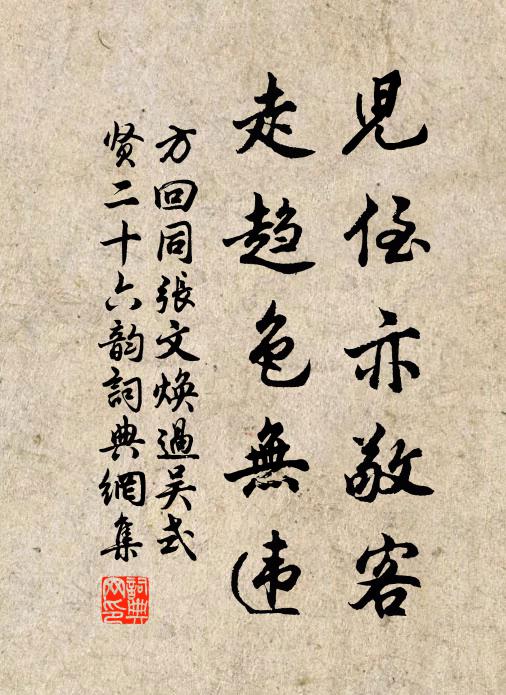 兒侄亦敬客
走趨色無违
方回同張文焕過吴式
贤二十六韵詞典網集
詞典網印